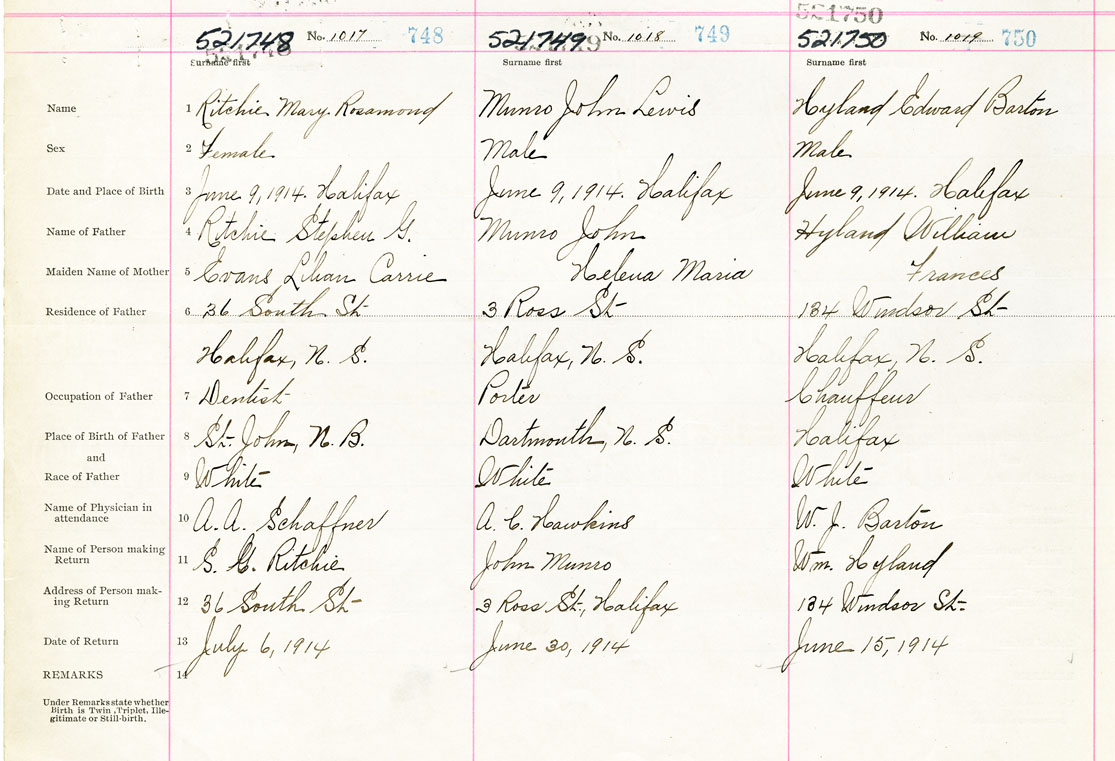 521750
521748 No. 1017 748 521749 No. 1018 749 521750 No. 1019 750
Surname first Surname first Surname first
Name 1 Ritchie Mary Rosamond Munro John Lewis Hyland Edward Barton
Sex 2 Female Male Male
Date and Place of Birth 3 June 9, 1914. Halifax June 9, 1914. Halifax June 9, 1914. Halifax
Name of Father 4 Ritchie Stephen G. Munro John Hyland William
Maiden Name of Mother 5 Evans Lilian Carrie Helena Maria Frances
Residence of Father 6 36 South St 3 Ross St 134 Windsor St
Halifax, N. S. Halifax, N. S. Halifax, N. S.
Occupation of Father 7 Dentist Porter Chauffeur
Place of Birth of Father 8 St. John, N. B. Dartmouth, N. S. Halifax
and
Race of Father 9 White White White
Name of Physician in
attendance 10 A. A. Schaffner A. C. Hawkins W. J. Barton
Name of Person making
Return 11 S. G. Ritchie John Munro Wm. Hyland
Address of Person mak-
ing Return 12 36 South St 3 Ross St., Halifax 134 Windsor St.
Date of Return 13 July 6, 1914 June 30, 1914 June 15, 1914
REMARKS 14
Under Remarks state whether
Birth is Twin, Triplet, Ille-
gitimate or Still-birth.